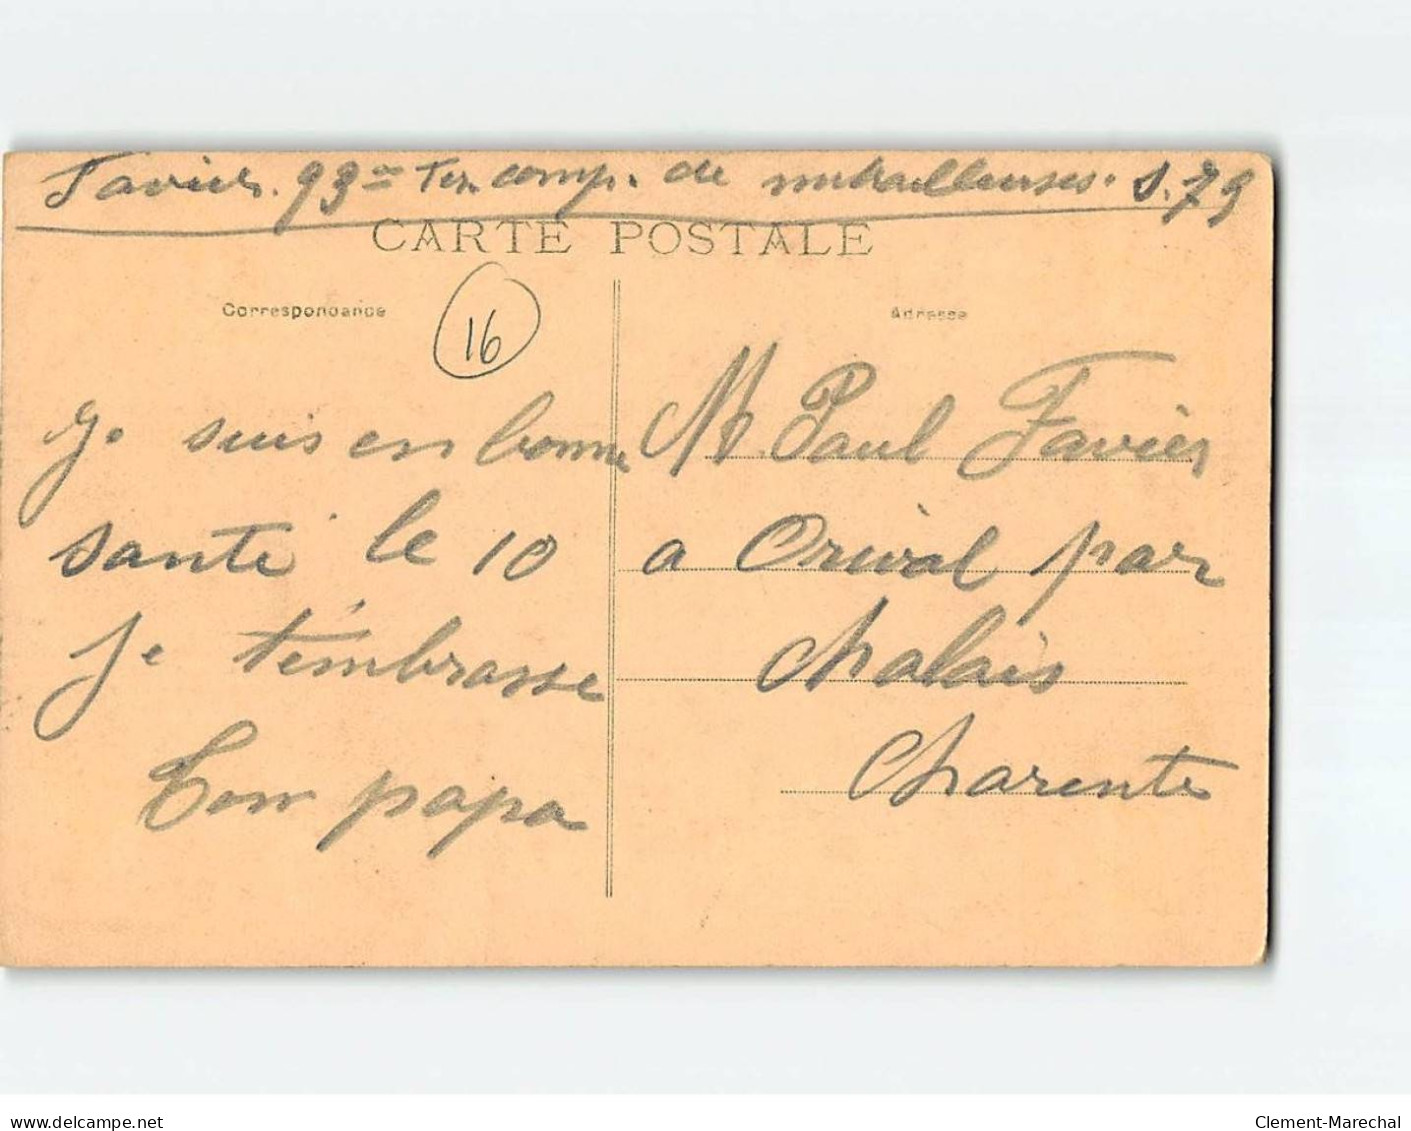 Favier. 93e Ter. comp. de mitrailleuses. S. 79
CARTE POSTALE
Correspondance
Adresse
16
Je suis en bonne
santé le 10
Je t'embrasse
Ton papa
M. Paul Favier
a Orival par
Chalais
Charente
www.delcampe.net
Clement-Marechal